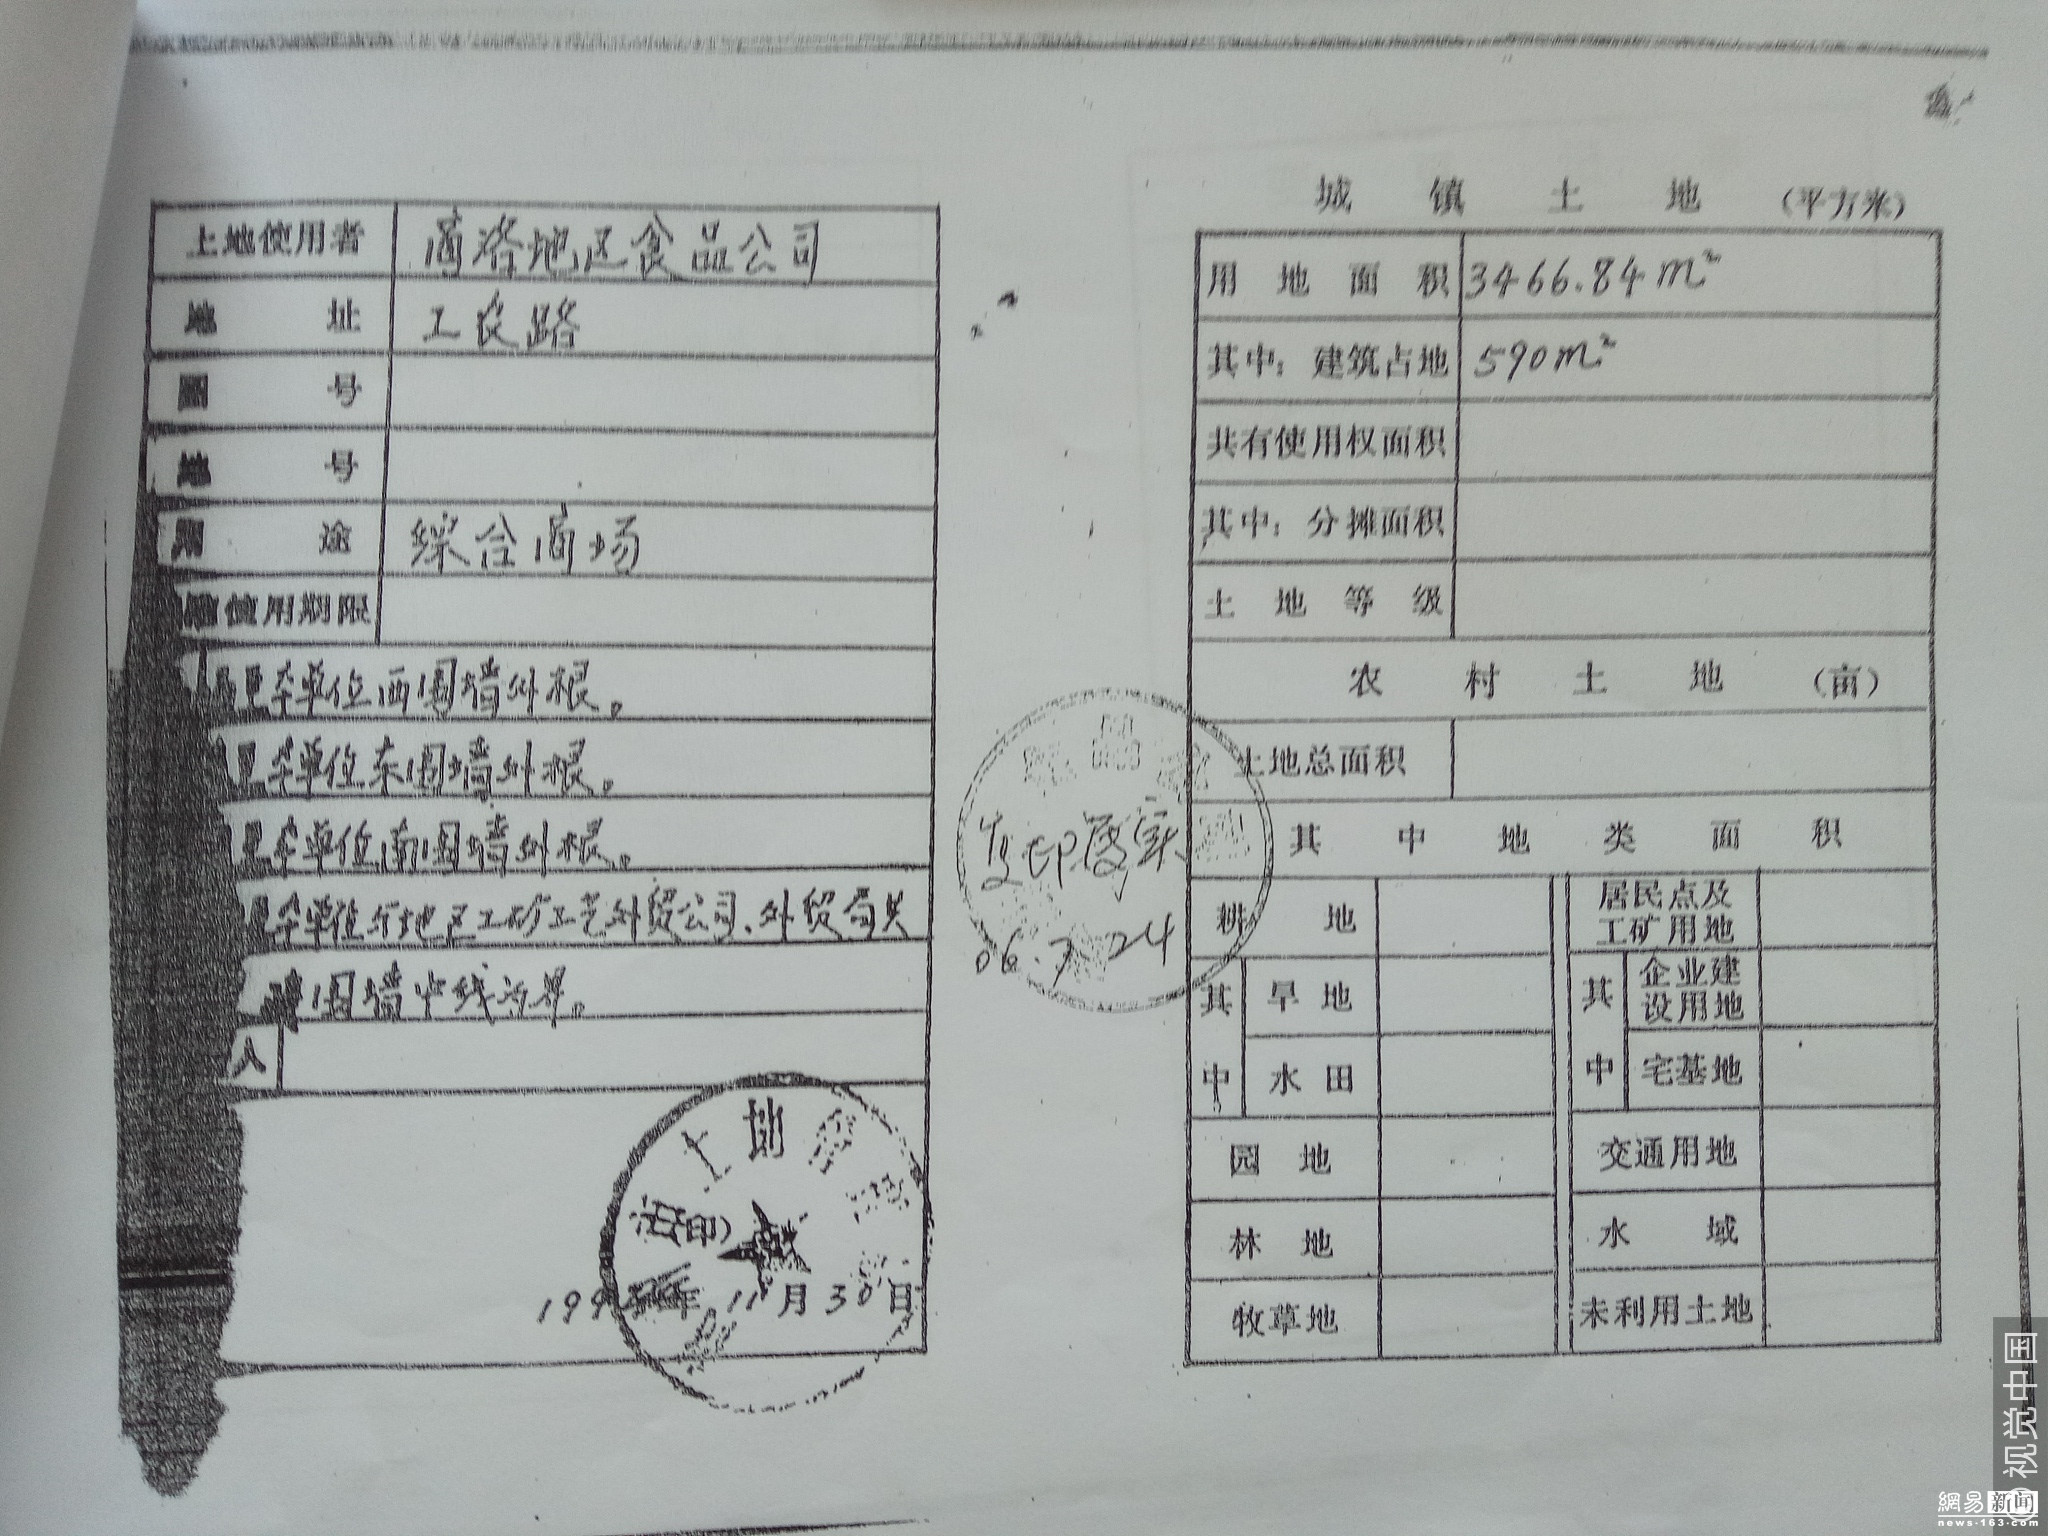 土地使用者 商洛地区食品公司
地址 工农路
图号
地号
用途 综合商场
使用期限
单位西围墙外根。
单位东围墙外根。
单位南围墙外根。
单位与地区工矿工艺外贸公司、外贸局共
围墙中线为界。
人
土地
(印)
199 年 11月30日
复印属实
06.7.24
城镇土地 (平方米)
用地面积 3466.84m²
其中: 建筑占地 590m²
共有使用权面积
其中: 分摊面积
土地等级
农村土地 (亩)
土地总面积
其中地类面积
耕地 居民点及
工矿用地
其中 旱地 其中 企业建
设用地
水田 宅基地
园地 交通用地
林地 水域
牧草地 未利用土地
视觉中国
網易 新闻
news.163.com